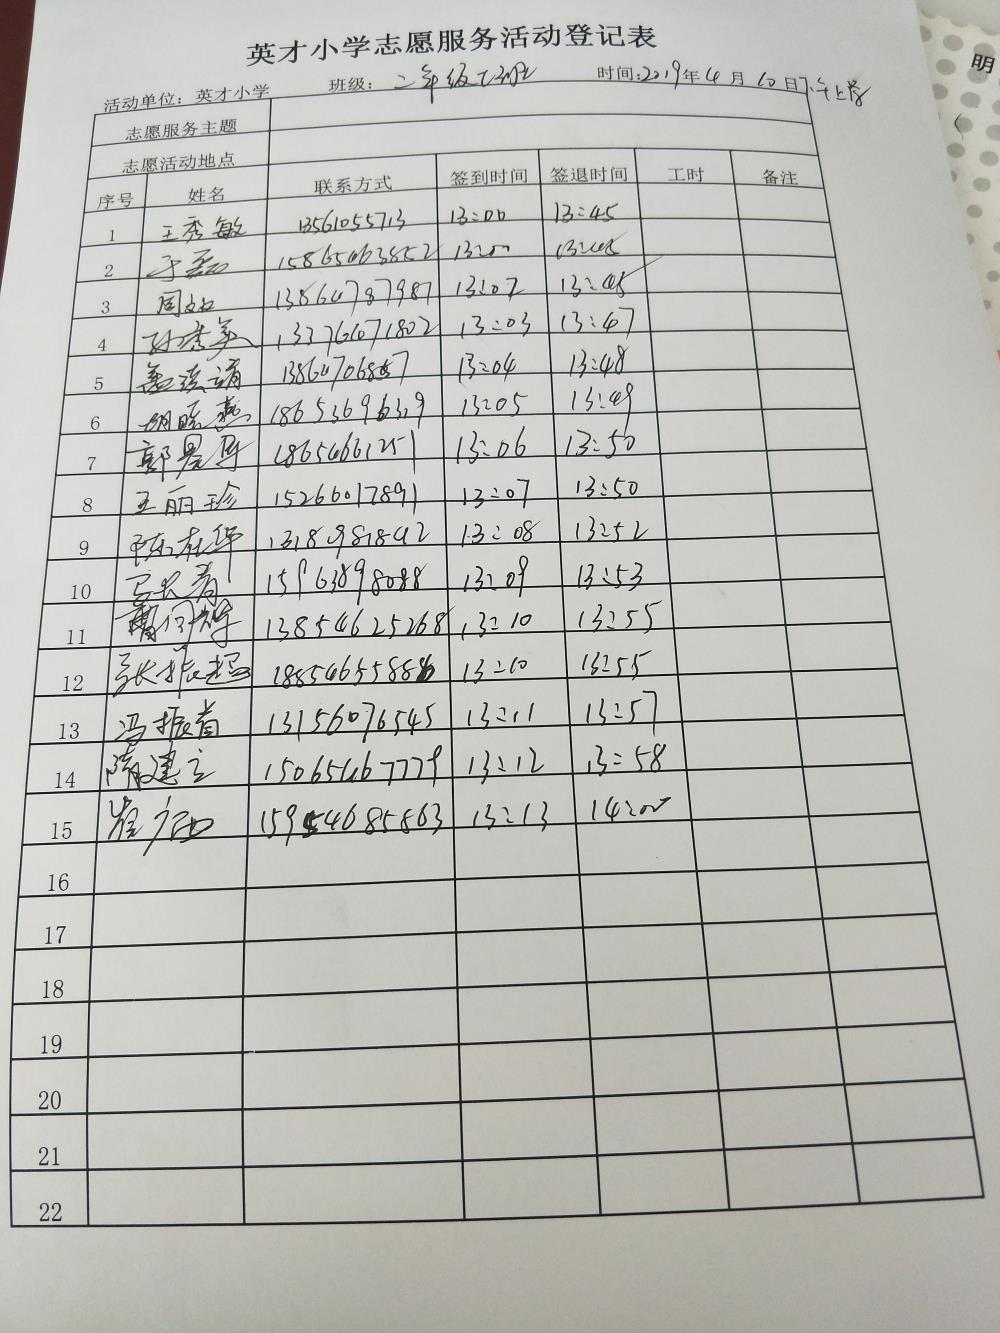 英才小学志愿服务活动登记表
活动单位：英才小学 班级：二年级 班 时间：2019年4月10日下午上学
志愿服务主题
志愿活动地点
序号 姓名 联系方式 签到时间 签退时间 工时 备注
1 王秀敏 13561055713 13:00 13:45
2 于磊 15865463852 13:00 13:45
3 周 13864787987 13:02 13:45
4 孙秀美 13376071802 13:03 13:47
5 13:04 13:48
6 胡晓燕 18653696329 13:05 13:49
7 郭景 18654661251 13:06 13:50
8 王丽珍 15266017891 13:07 13:50
9 陈在华 13:08 13:52
10 15963898088 13:09 13:53
11 13854625268 13:10 13:55
12 张振超 18854655888 13:10 13:55
13 冯振省 13156076545 13:11 13:57
14 隋建立 15065467779 13:12 13:58
15 崔 15954685863 13:13 14:00
16
17
18
19
20
21
22
明